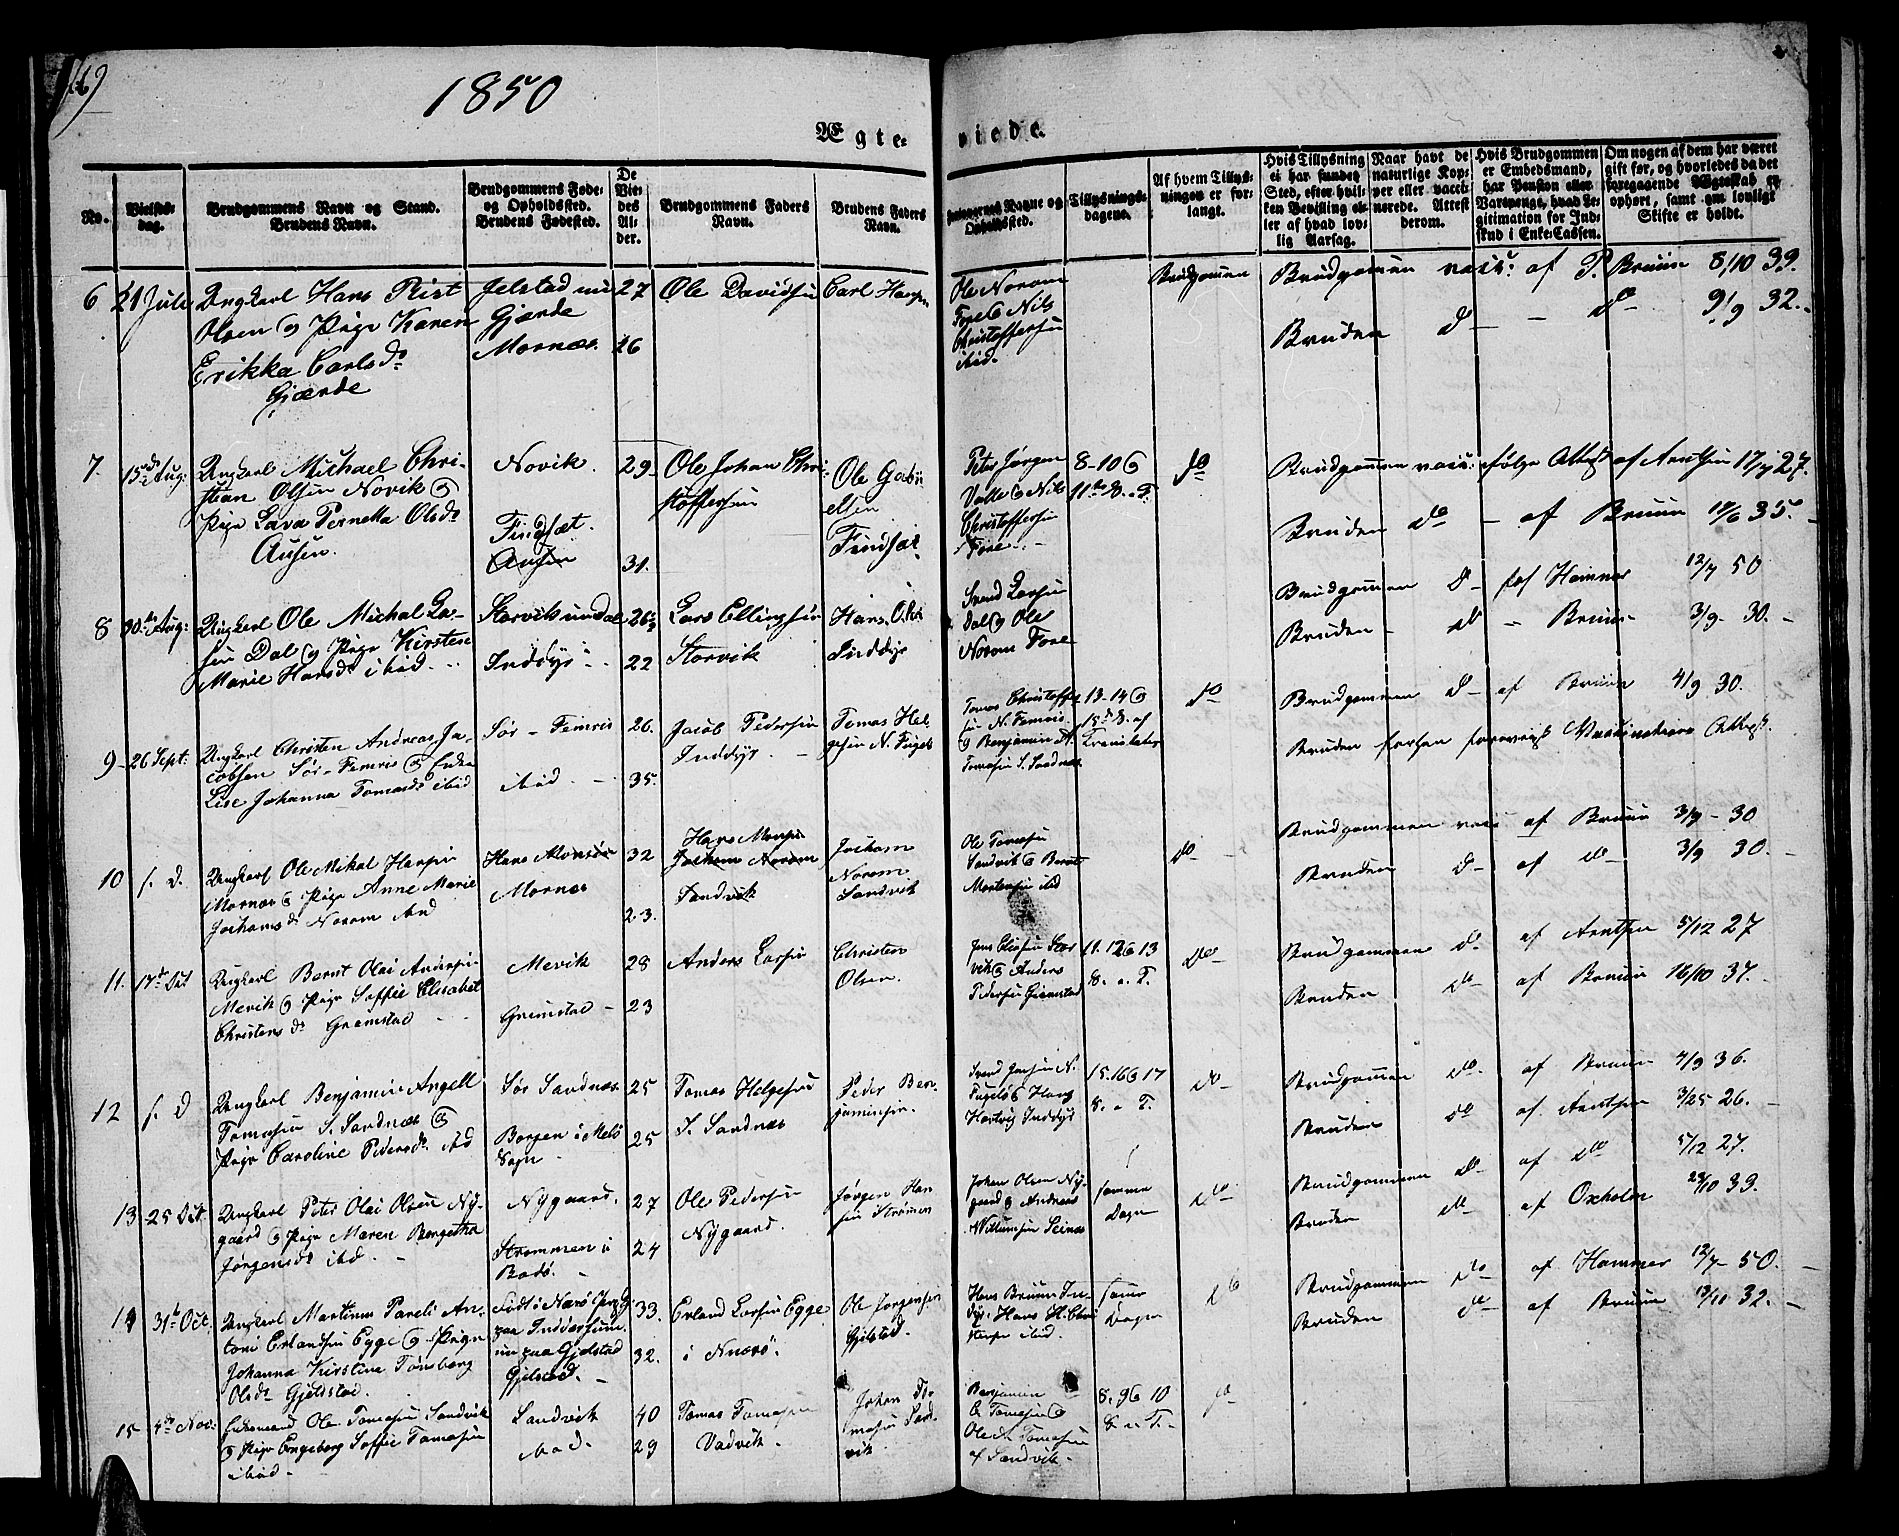 1850
Ægte=
viede.
No.
Vielses-
dag.
Brudgommens Navn og Stand.
Brudens Navn.
Brudgommens Føde-
og Opholdssted.
Brudens Fødested.
De
Vie-
des
Al-
der.
Brudgommens Faders
Navn.
Brudens Faders
Navn.
Forlovernes Navne og
Opholdssted.
Tillysnings-
dagene.
Af hvem Tillys-
ningen er for-
langt.
Hvis Tillysning
ei har fundet
Sted, efter hvil-
ken Bevilling el-
ler af hvad lov-
lig Aarsag.
Naar havt de
naturlige Kop-
per eller vacci-
nerede. Attest
derom.
Hvis Brudgommen
er Embedsmand,
har Pension eller
Vartpenge, hvad Le-
gitimation for Ind-
skud i Enke-Cassen.
Om nogen af dem har været
gift før, og hvorledes da det
foregaaende Ægteskab er
ophørt, samt om lovligt
Skifte er holdt.
6 21 Juli Ungkarl Hans Rist
Olsen og Pige Karen
Erikka Carlsd.
Gjærde
Jelstad nu
Gjærde
Mornæs.
27
26
Ole Davidsen
Carl Hansen
Ole Norom
Fore og Nils
Christoffersen
ibid.
Brudgommen
Brudgommen vacc. af P. Bruun 8/10 39.
Bruden do - do 9/9 32.
7. 15de Aug: Ungkarl Michael Chri-
stian Olsen Novik og
Pige Lava Pernella Olsd.
Ausen.
Novik.
Findsæt.
Ausen
29
31.
Ole Johan Chri-
stoffersen
Ole Gabri
elsen
Findsæt
Peter Jørgen
Valle og Nils
Christoffersen
Fore.
8-10 og
11te S. e. T.
do
Brudgommen vacc. følge Attest af Arntsen 17/7 27.
Bruden do - af Bruun 17/6 35.
8 30te Aug: Ungkarl Ole Michal La-
sen Dal og Pige Kirsten
Marie Hansd. ibid
Storvik nu Dal
Inddyr
26
22
Lars Ellingsen
Storvik
Hans Ols
Inddyr
Svend Larsen
Dal og Ole
Norom Fore
Brudgommen do af Hammer 12/7 50
Bruden do - Bruun 3/9 30.
9 26 Sept: Ungkarl Christen Andreas Ja-
cobsen Sør-Femris og Enke
Lise Johanna Tomasd. ibid
Sør-Femris
ibid.
26.
35.
Jacob Pedersen
Inddyr
Tomas Hel
gesen N. Fugelø
Tomas Christoffer
sen N. Femris
og Benjamin A.
Tomasen S. Sandnæs
13-14 og
15de S. af
Trinitatis
do
Brudgommen do af Bruun 4/9 30.
Bruden forsen forevist Vaccinations Attest.
10 s. D. Ungkarl Ole Mikal Hansen
Mornæs og Pige Anne Marie
Jochumsd. Norom ibid
Hans Monsen
Mornæs
32
23.
Hans Monsen
Jochum Norom
Sandvik
Jochum
Norom
Sandvik
Ole Tomasen
Sandvik og Bernt
Mortensen ibid
do
Brudgommen vacc af Bruun 3/9 - 30
Bruden do af do 3/9 30.
11. 17de Oct Ungkarl Bernt Olai Andersen
Mevik og Pige Soffie Elisabet
Christensd. Grimstad
Mevik
Grimstad
28
23
Anders Larsen
Christen
Olsen
Jens Eliasen Stor
vik og Anders
Pedersen Grimstad
11. 12 og 13
S. e. T.
do
Brudgommen do af Arntsen 5/12 27
Bruden do af Bruun 16/10 37.
12 s. D Ungkarl Benjamin Angell
Tomasen S. Sandnæs og
Pige Caroline Pedersd. ibid
Sør Sandnæs
Borgen i Melø
Sogn
25
25
Tomas Helgesen
S. Sandnæs
Peder Ben
jaminsen.
Svend Jensen N.
Fugelø og Hans
Hartvig Inddyr
15. 16 og 17
S. e. T.
do
Brudgommen do af Bruun 4/9 36.
Bruden do af Arntsen 3/25 26.
13 25 Oct. Ungkarl Peter Olai Olsen Ny-
gaard og Pige Maren Bergitha
Jørgensd. ibd.
Nygaard.
Strømmen i
Bodø.
27
24
Ole Pedersen
Nygaard.
Jørgen Han
sen Strømen
Johan Olsen Ny-
gaard og Andreas
Willumsen Seines
samme
Dage
do
Brudgommen do af do 5/12 27.
Bruden do af Oxholm 29/10 33.
14 31te Oct. Ungkarl Martinus Pareli An-
toni Erlandsen Egge og Pigen
Johanna Kirstine Tønsberg
Olsd. Gjelstad.
Født i Nærø Præstg.
paa Indderhuun
nu paa Gjelstad
Gjelstad.
33.
32.
Erland Larsen Egge
i Nærø.
Ole Jørgensen
Gjelstad.
Hans Bruun In-
dyr. Hans H. Chri
stensen ibid.
samme
Dage
do
Brudgommen do af Hammer 12/7 50.
Bruden do af Bruun 13/11 32.
15 4de Nov: Enkemand Ole Tomasen Sandvik
og Pige Engeborg Soffie Tomasen
ibid.
Sandvik
ibid.
40
29
Tomas Tomasen
Vadvik.
Johan To-
masen Sand
vik
Benjamin
A Tomasen og
Ole A Tomasen
af Sandvik.
8. 9 og 10
S. e. T.
do